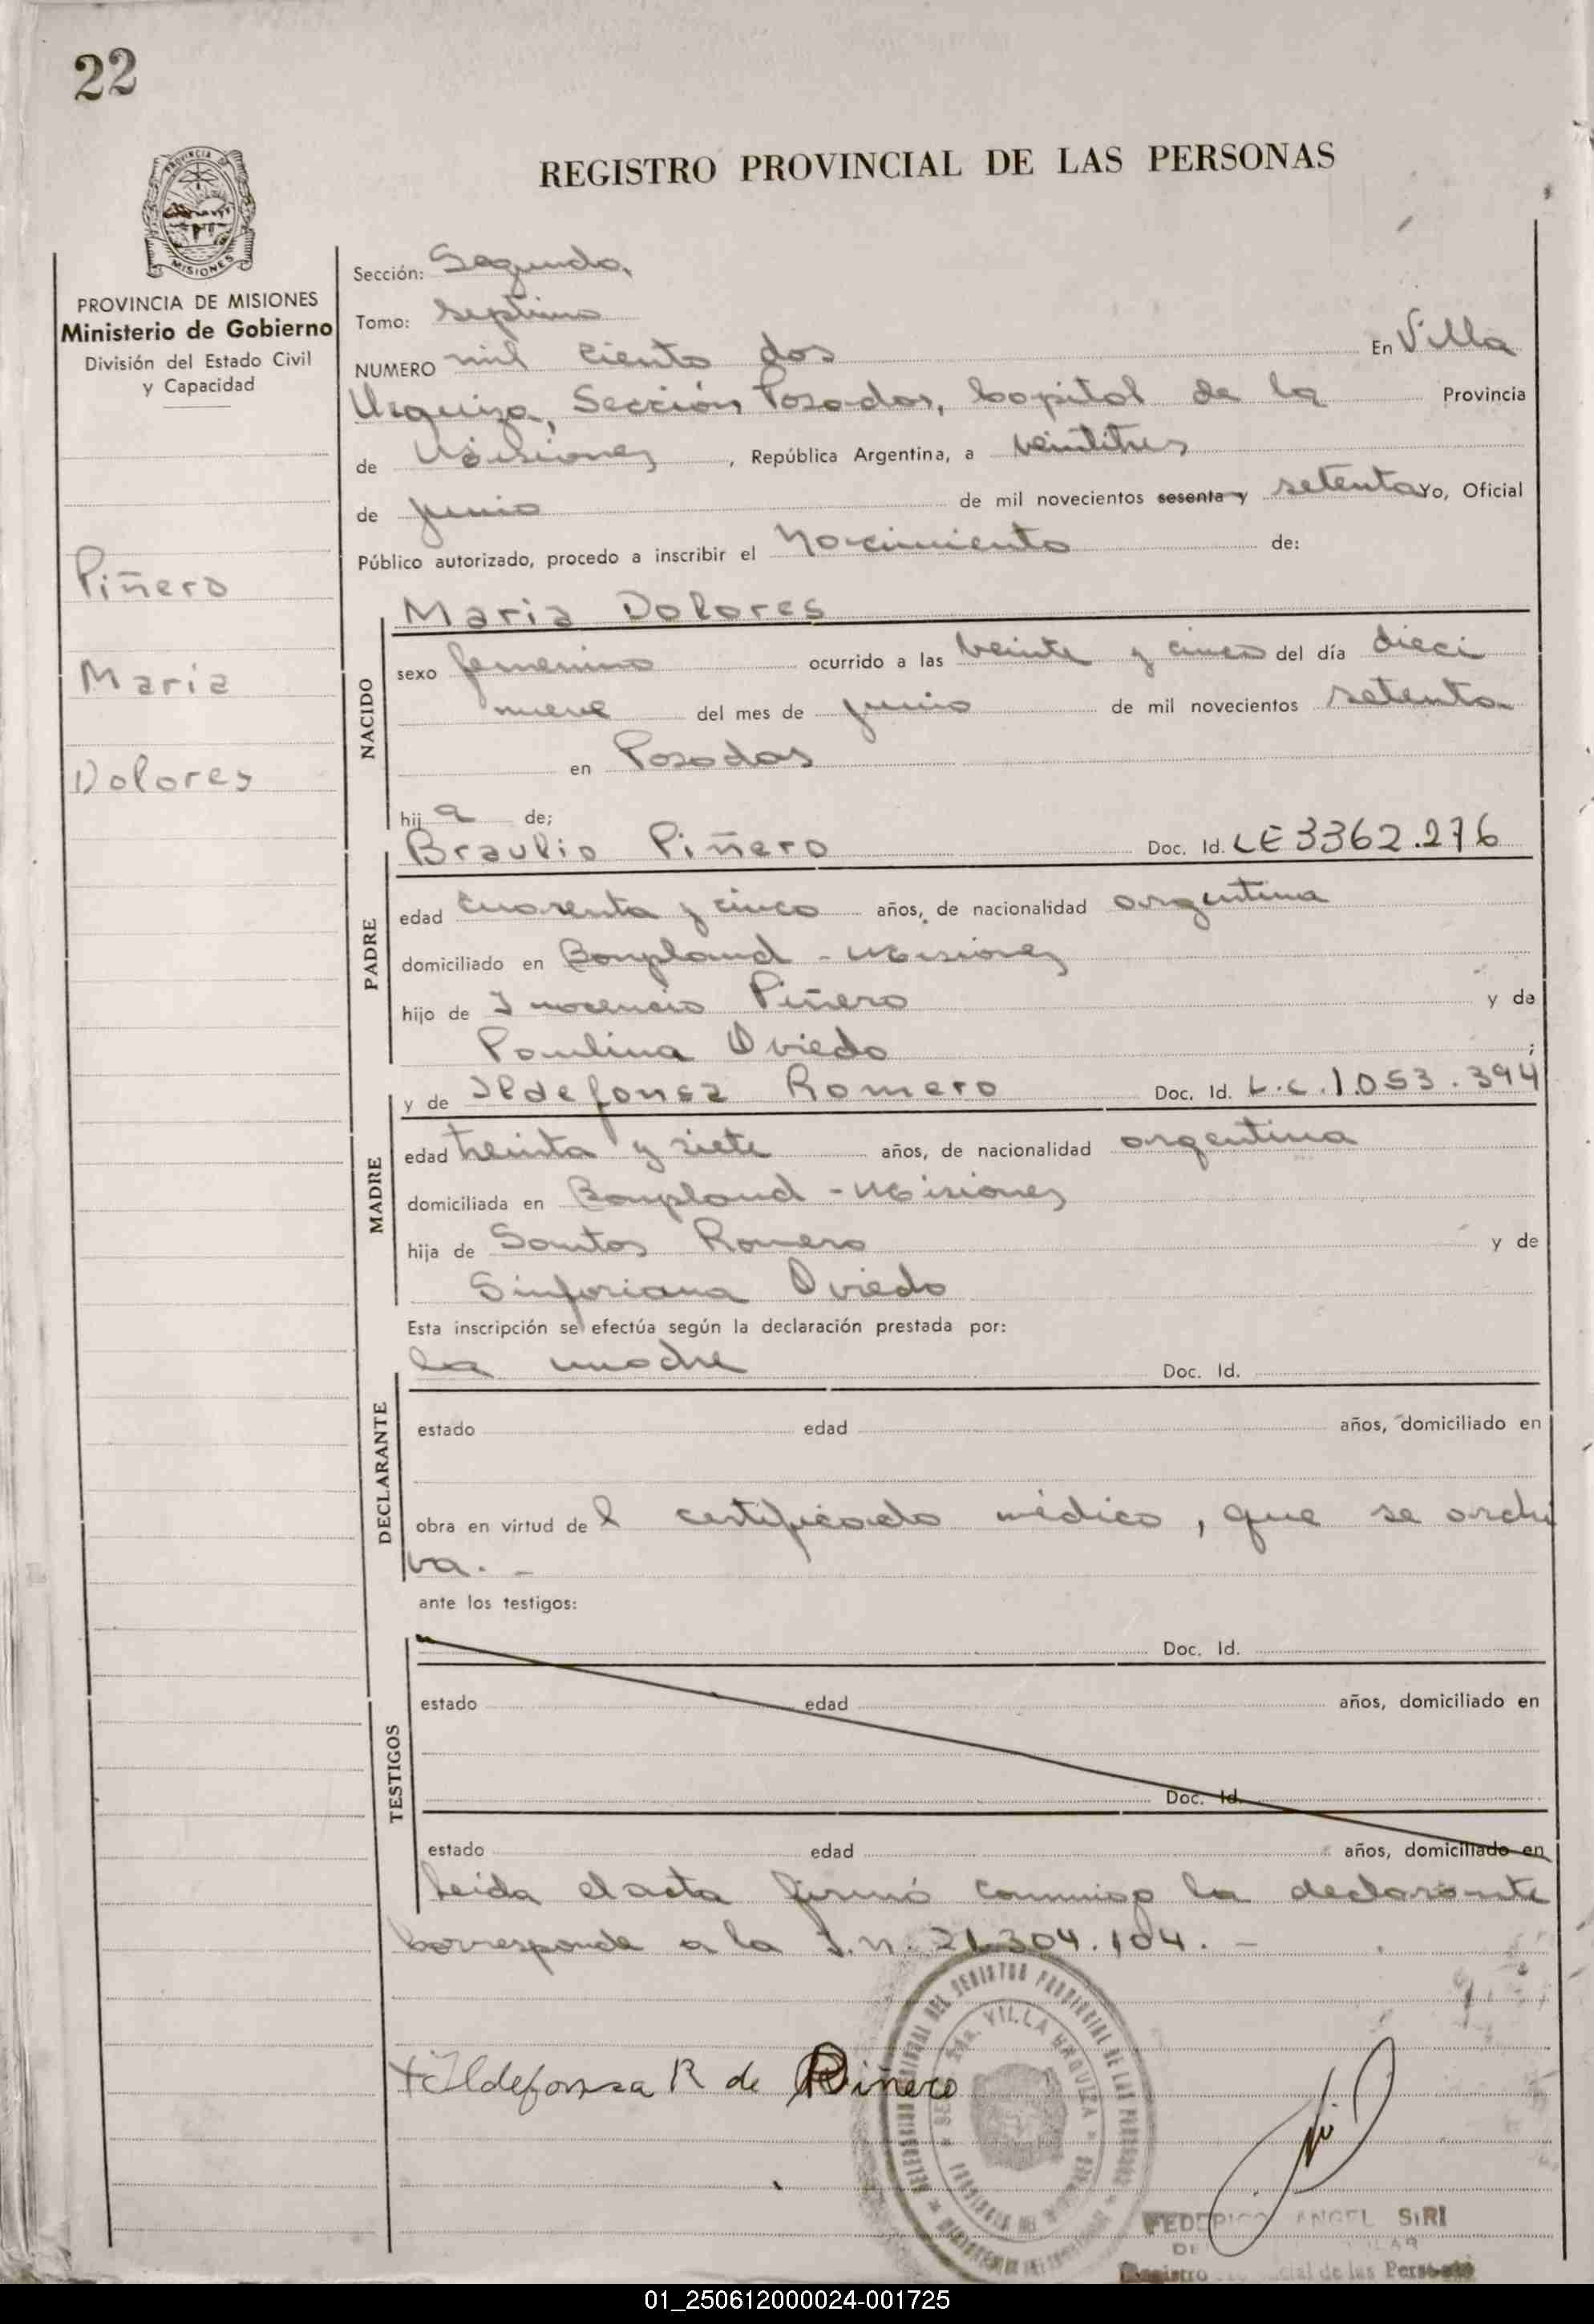 22
REGISTRO PROVINCIAL DE LAS PERSONAS
PROVINCIA DE MISIONES
MISIONES
PROVINCIA DE MISIONES
Ministerio de Gobierno
División del Estado Civil
y Capacidad
Piñero
Maria
Dolores
Sección: Segunda,
Tomo: septimo
NUMERO mil ciento dos En Villa
Urquiza, Sección Posadas, Capital de la Provincia
de Misiones, República Argentina, a veintitres
de junio de mil novecientos sesenta y setenta Yo, Oficial
Público autorizado, procedo a inscribir el Nacimiento de:
NACIDO
Maria Dolores
sexo femenino ocurrido a las veinte y cinco del día dieci
nueve del mes de junio de mil novecientos setenta
en Posadas
hij a de;
PADRE
Braulio Piñero Doc. Id. LE 3362.276
edad cuarenta y cinco años, de nacionalidad argentina
domiciliado en Bonpland - Misiones
hijo de Inocencio Piñero y de
Paulina Oviedo ;
MADRE
y de Ildefonsa Romero Doc. Id. L.C.1.053.394
edad treinta y siete años, de nacionalidad argentina
domiciliada en Bonpland - Misiones
hija de Santos Romero y de
Sinforiana Oviedo
Esta inscripción se efectúa según la declaración prestada por:
DECLARANTE
la madre Doc. Id.
estado edad años, domiciliado en
obra en virtud de l certificado médico, que se archi
va. -
ante los testigos:
TESTIGOS
Doc. Id.
estado edad años, domiciliado en
Doc. Id.
estado edad años, domiciliado en
Leida el acta firmó conmigo la declarante
Corresponde a la I.n. 21.304.104. -
Ildefonsa R de Piñero
VILLA URQUIZA
FEDERICO ANGEL SIRI
Registro de las Personas
01_250612000024-001725